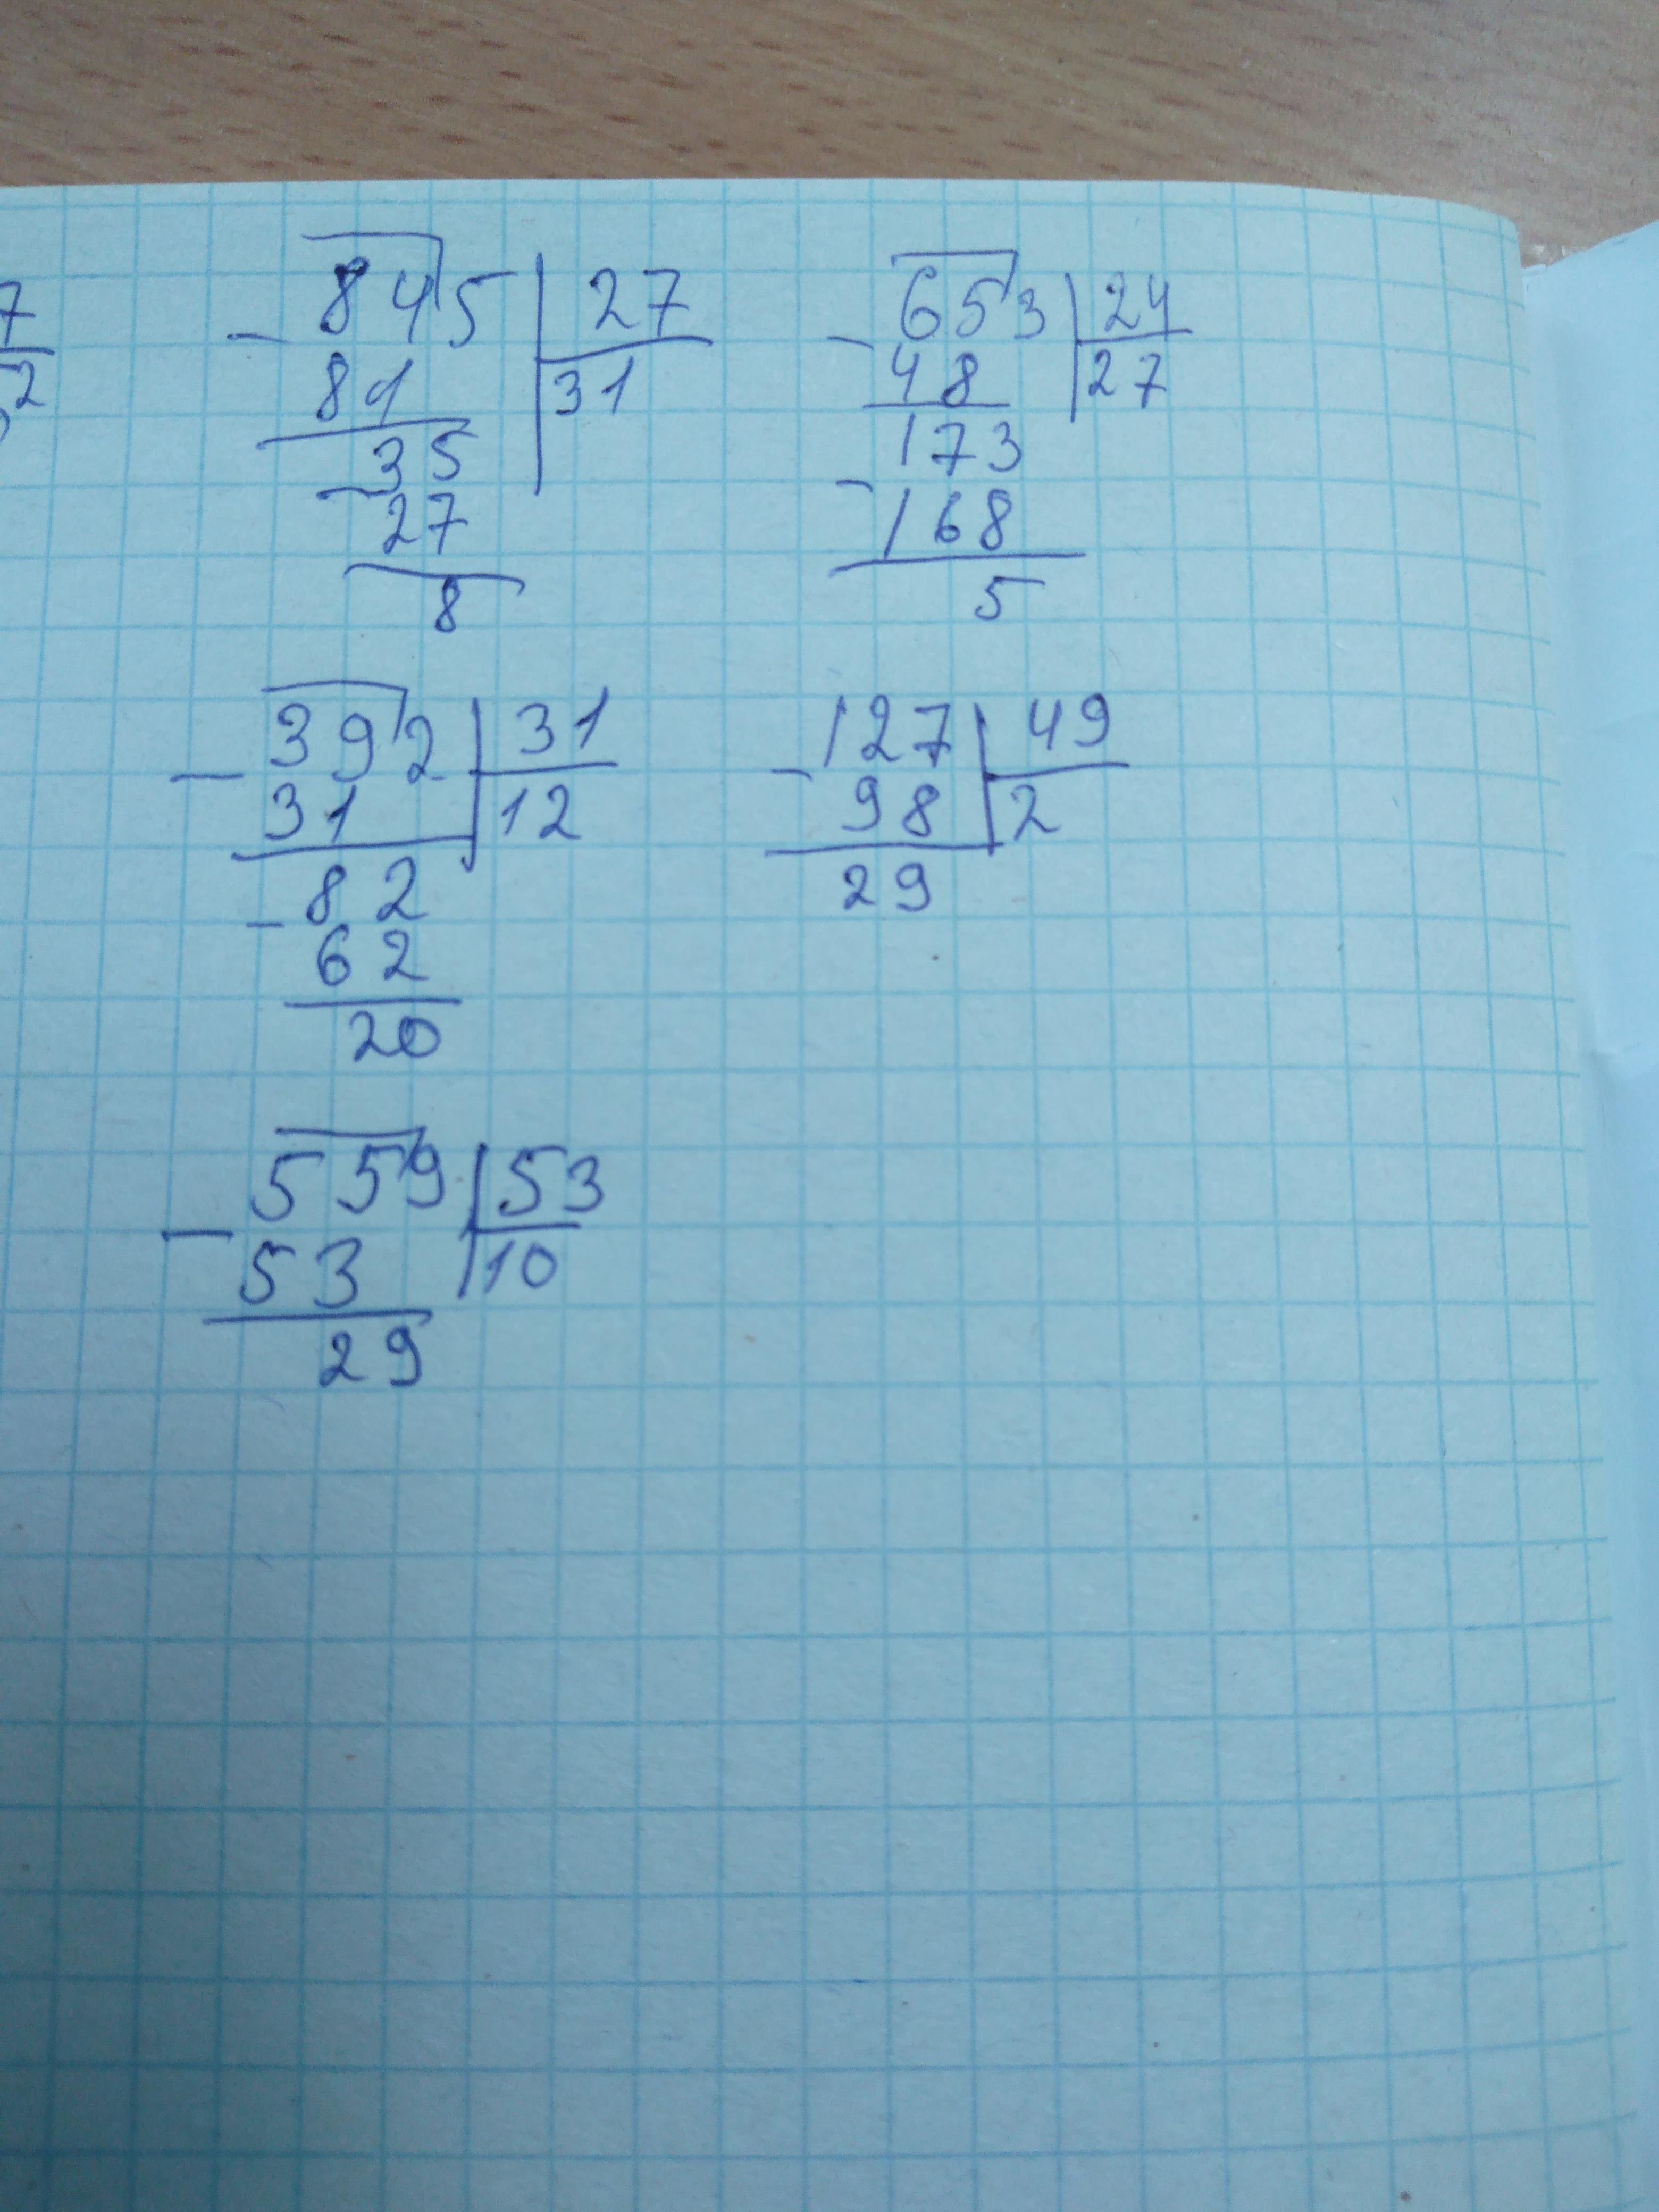 7
2
845 27
- 81 31
35
- 27
8
653 24
- 48 27
173
- 168
5
392 31
- 31 12
82
- 62
20
127 49
- 98 2
29
559 53
- 53 10
29